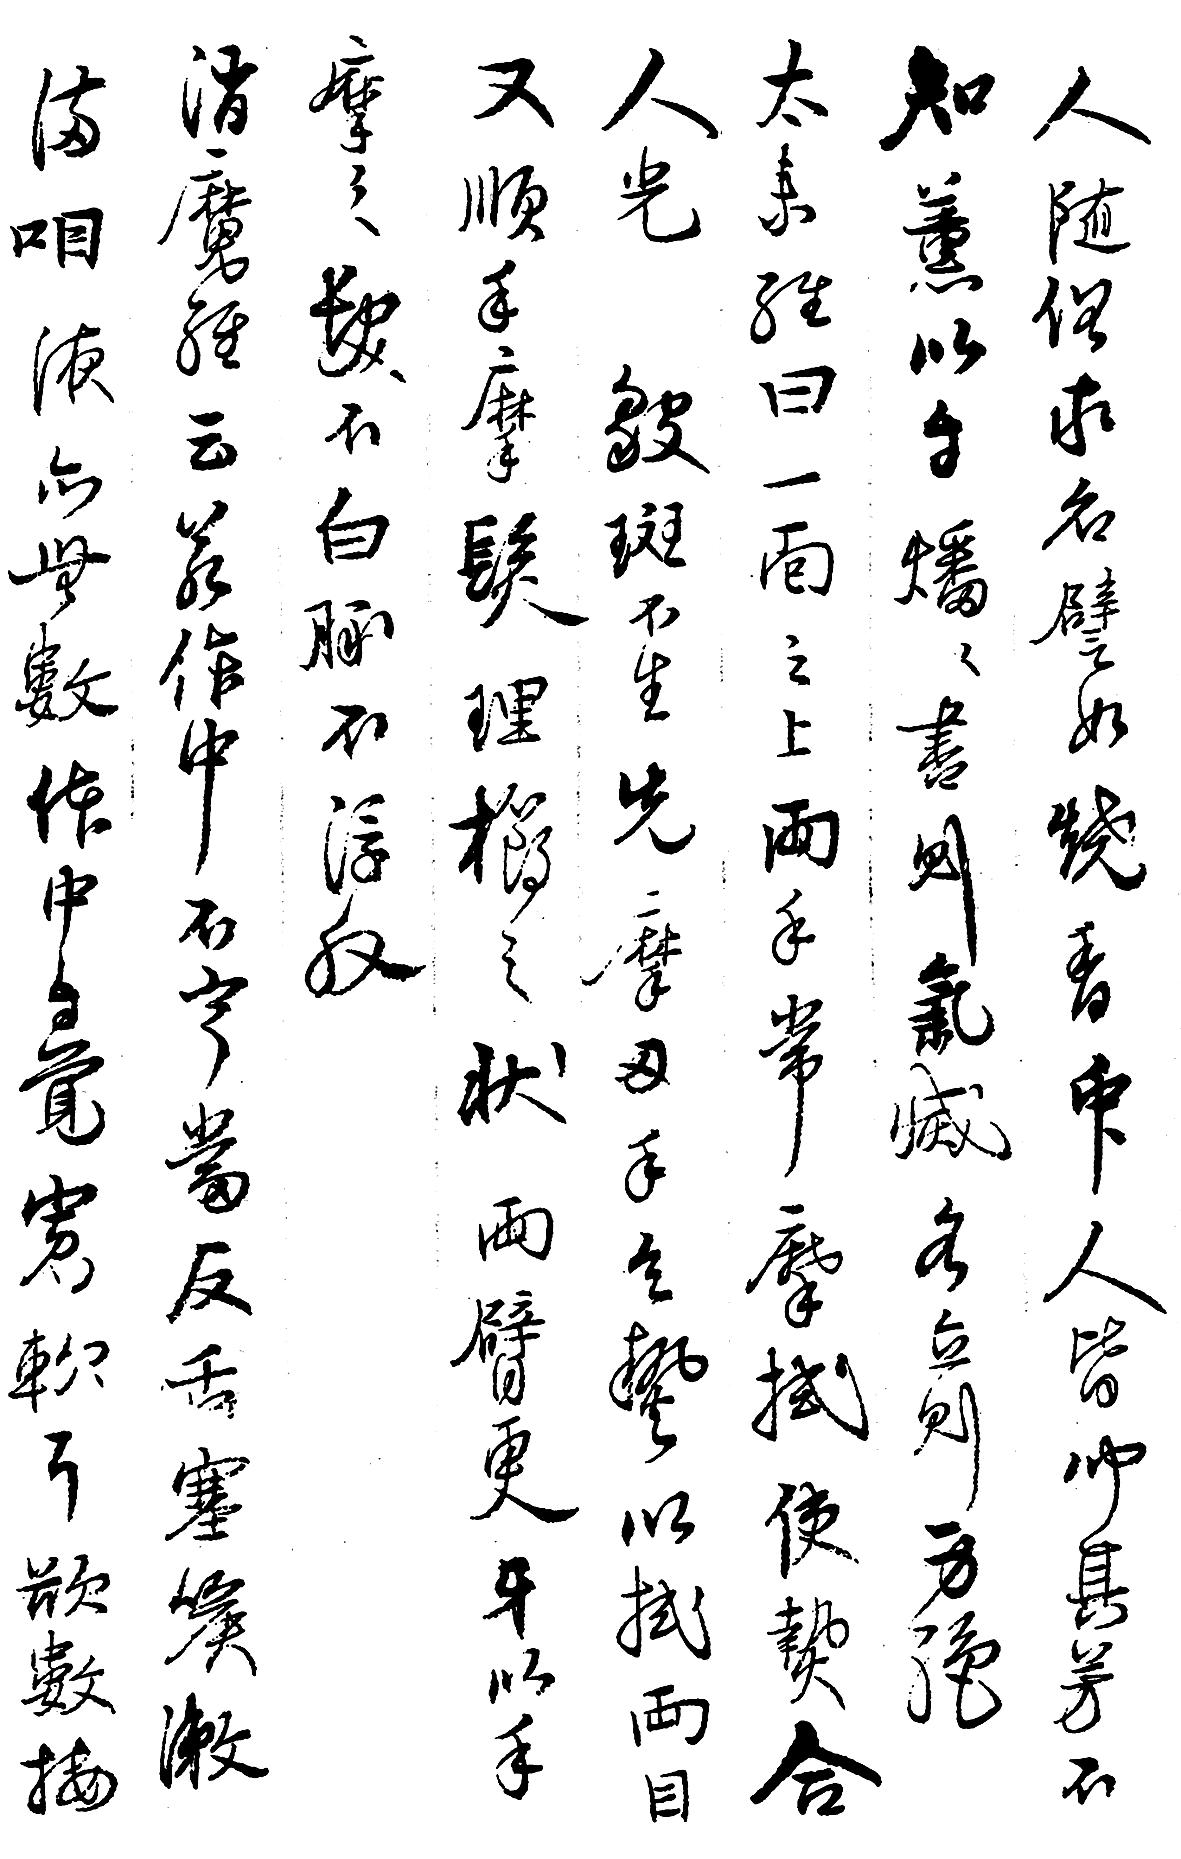 人随俗求名譬如燒香中人皆仰其芳不
知薰以自燔〻盡則氣滅名立則身絕
太素經曰一面之上兩手常摩拭使熱令
人光皺斑不生先摩切手令熱以拭兩目
又順手摩髮理櫛之狀兩臂更牙以手
摩之髮不白脉不浮
消魔經云若体中不寧當反舌塞喉漱
滿咽液亦無數体中自覺寬軟耳欲數按